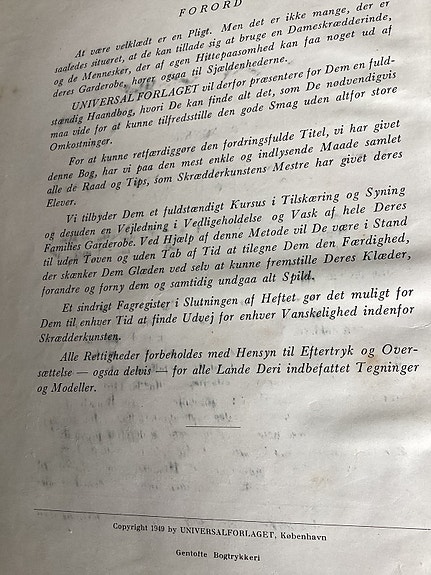 FORORD
At være velklædt er en Pligt. Men det er ikke mange, der er
saaledes situeret, at de kan tillade sig at bruge en Dameskrædderinde,
og de Mennesker, der af egen Hittepaasomhed kan faa noget ud af
deres Garderobe, hører ogsaa til Sjældenhederne.
UNIVERSALFORLAGET vil derfor præsentere for Dem en fuld-
stændig Haandbog, hvori De kan finde alt det, som De nødvendigvis
maa vide for at kunne tilfredsstille den gode Smag uden altfor store
Omkostninger.
For at kunne retfærdiggøre den fordringsfulde Titel, vi har givet
denne Bog, har vi paa den mest enkle og indlysende Maade samlet
alle de Raad og Tips, som Skrædderkunstens Mestre har givet deres
Elever.
Vi tilbyder Dem et fuldstændigt Kursus i Tilskæring og Syning
og desuden en Vejledning i Vedligeholdelse og Vask af hele Deres
Families Garderobe. Ved Hjælp af denne Metode vil De være i Stand
til uden Tøven og uden Tab af Tid at tilegne Dem den Færdighed,
der skænker Dem Glæden ved selv at kunne fremstille Deres Klæder,
forandre og forny dem og samtidig undgaa alt Spild.
Et sindrigt Fagregister i Slutningen af Heftet gør det muligt for
Dem til enhver Tid at finde Udvej for enhver Vanskelighed indenfor
Skrædderkunsten.
Alle Rettigheder forbeholdes med Hensyn til Eftertryk og Over-
sættelse — ogsaa delvis — for alle Lande Deri indbefattet Tegninger
og Modeller.
Copyright 1949 by UNIVERSALFORLAGET, København
Gentofte Bogtrykkeri